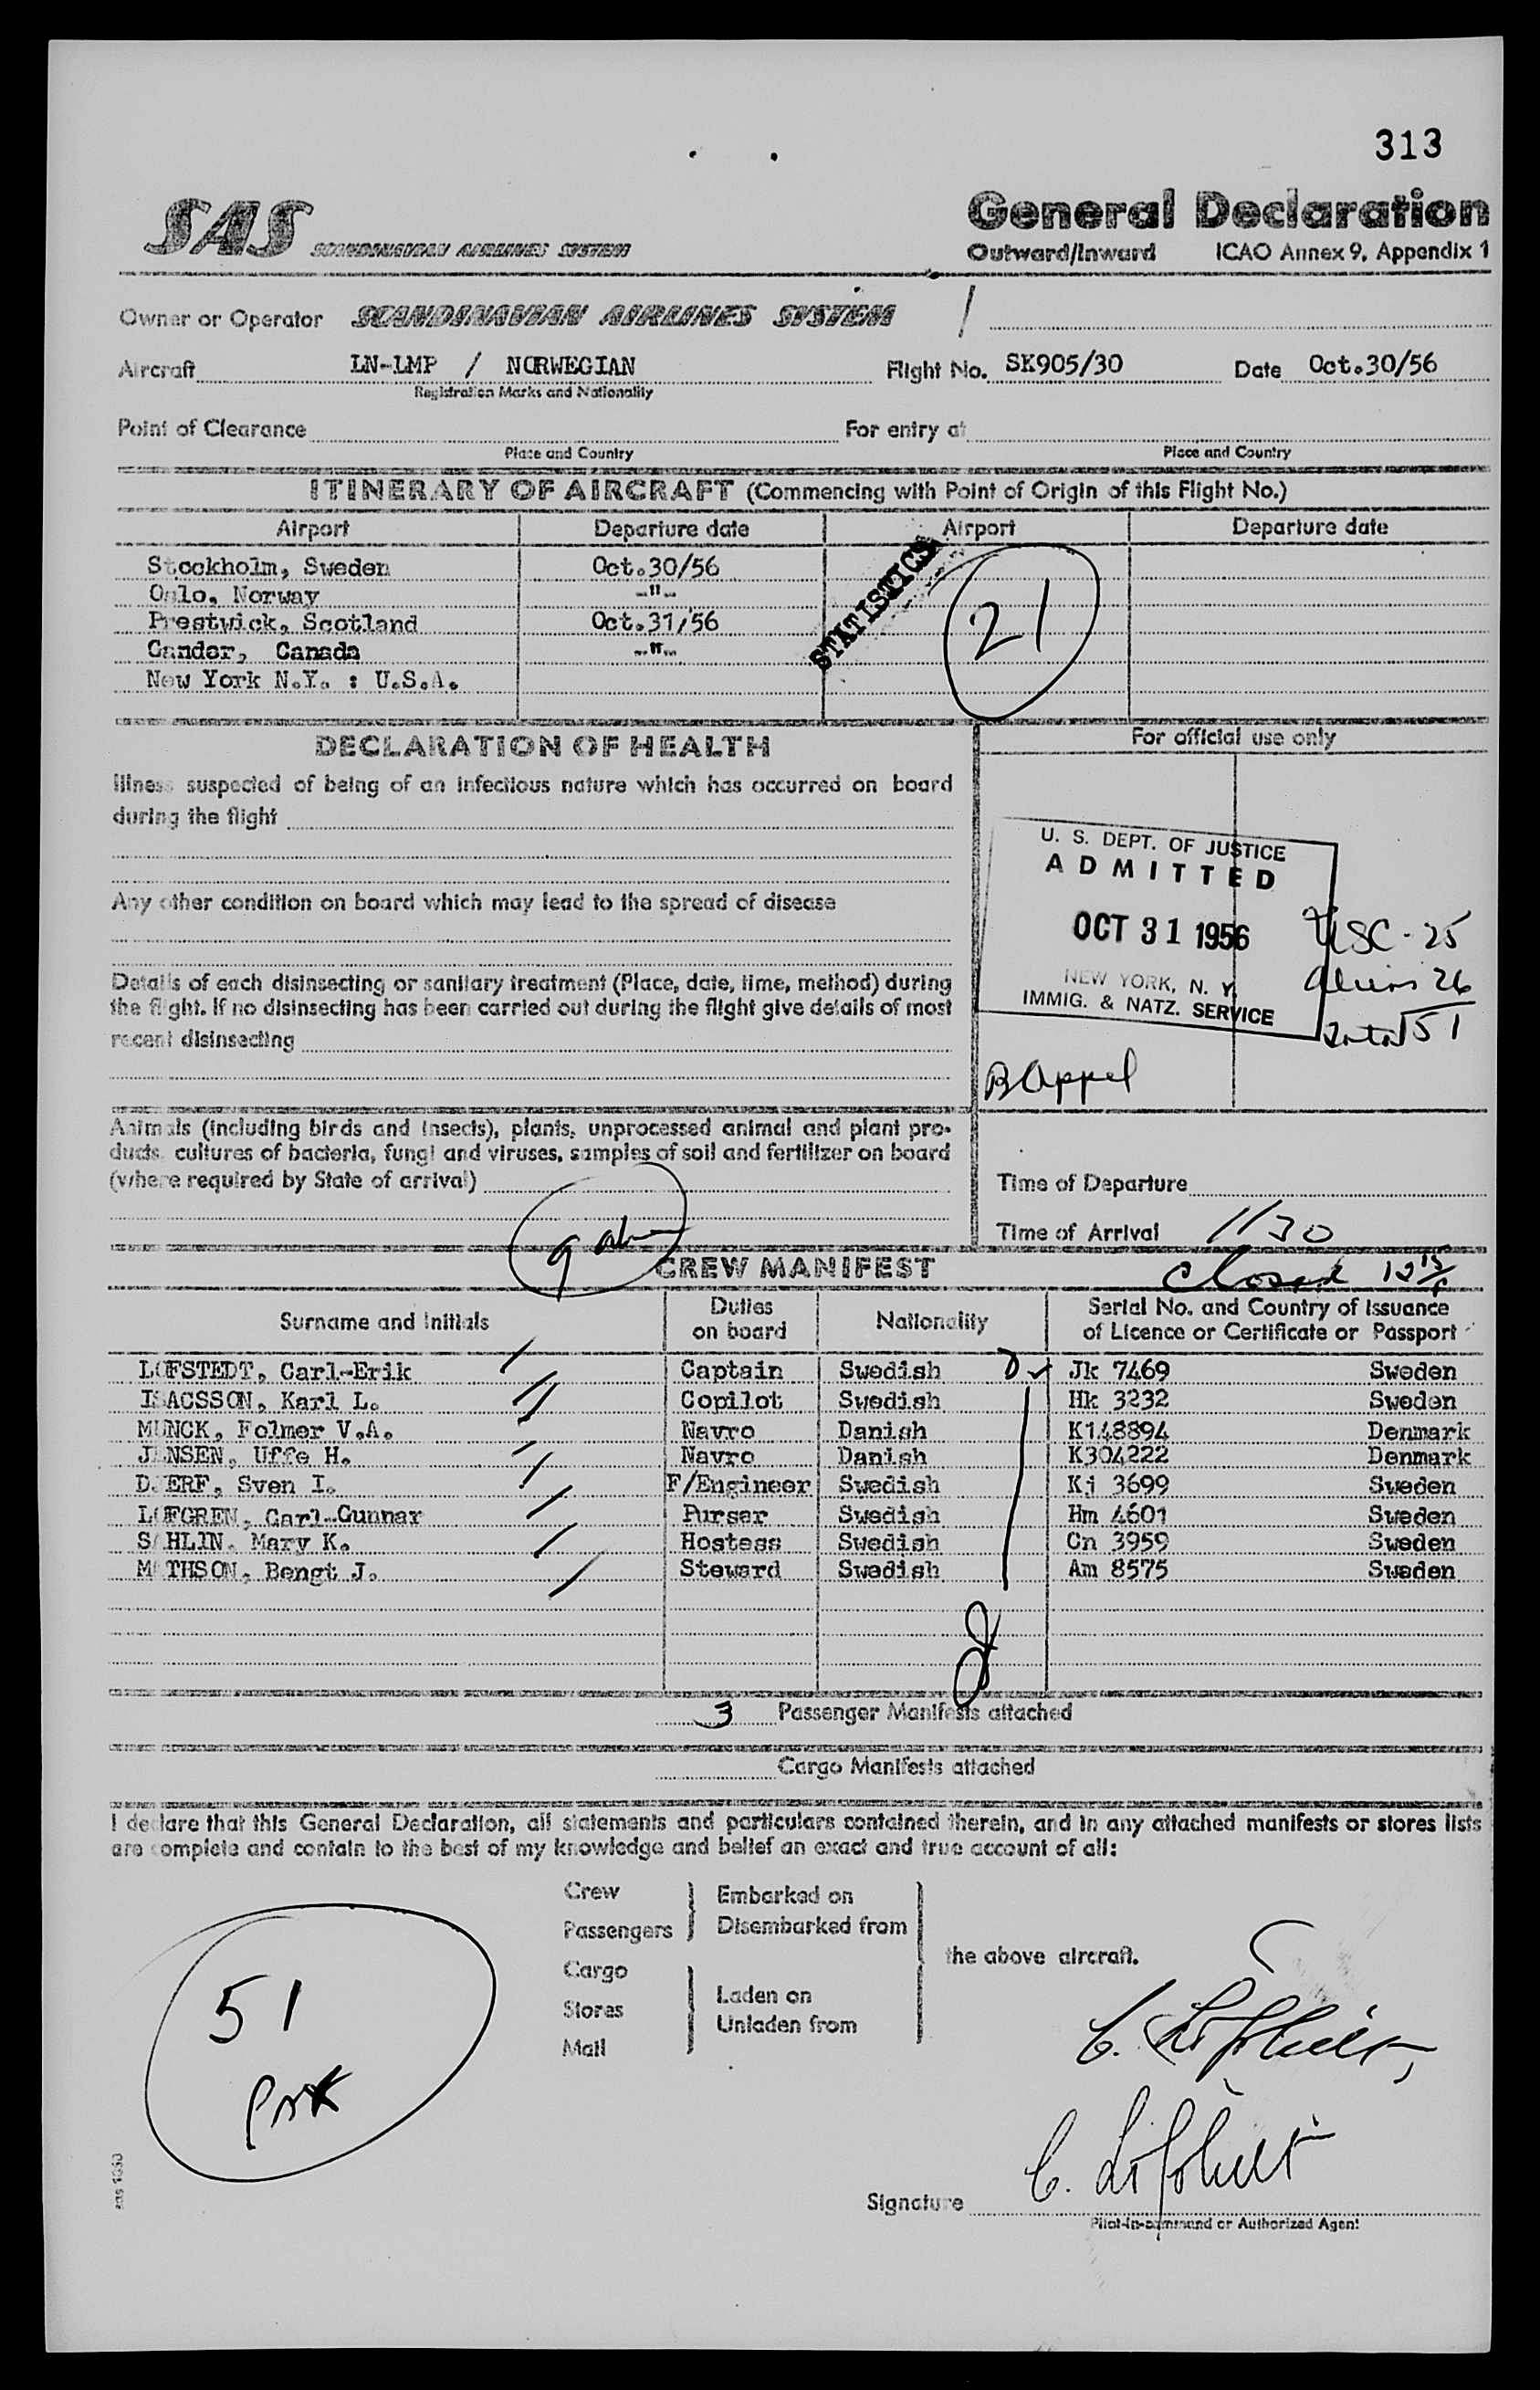 313
SAS SCANDINAVIAN AIRLINES SYSTEM
General Declaration
Outward/Inward ICAO Annex 9, Appendix 1
Owner or Operator SCANDINAVIAN AIRLINES SYSTEM /
Aircraft LN-LMP / NORWEGIAN Flight No. SK905/30 Date Oct.30/56
Registration Marks and Nationality
Point of Clearance For entry at
Place and Country Place and Country
ITINERARY OF AIRCRAFT (Commencing with Point of Origin of this Flight No.)
Airport Departure date Airport Departure date
Stockholm, Sweden Oct.30/56
Oslo, Norway -"-
Prestwick, Scotland Oct.31/56
Gander, Canada -"-
New York N.Y. : U.S.A.
STATISTICS
21
DECLARATION OF HEALTH
For official use only
Illness suspected of being of an infectious nature which has occurred on board
during the flight
Any other condition on board which may lead to the spread of disease
Details of each disinsecting or sanitary treatment (Place, date, time, method) during
the flight. If no disinsecting has been carried out during the flight give details of most
recent disinsecting
U. S. DEPT. OF JUSTICE
ADMITTED
OCT 31 1956
NEW YORK, N. Y.
IMMIG. & NATZ. SERVICE
USC - 25
aliens 26
Total 51
B Appel
Animals (including birds and insects), plants, unprocessed animal and plant pro-
ducts, cultures of bacteria, fungi and viruses, samples of soil and fertilizer on board
(where required by State of arrival)
Time of Departure
Time of Arrival 1130
9
Closed 12 15/
CREW MANIFEST
Surname and Initials Duties on board Nationality Serial No. and Country of Issuance of Licence or Certificate or Passport
LOFSTEDT, Carl-Erik Captain Swedish Jk 7469 Sweden
ISACSSON, Karl L. Copilot Swedish Hk 3232 Sweden
MUNCK, Folmer V.A. Navro Danish K148894 Denmark
JENSEN, Uffe H. Navro Danish K304222 Denmark
DJERF, Sven I. F/Engineer Swedish Kj 3699 Sweden
LOFGREN, Carl-Gunnar Purser Swedish Hm 4601 Sweden
SAHLIN, Mary K. Hostess Swedish Cn 3959 Sweden
MATHSON, Bengt J. Steward Swedish Am 8575 Sweden
3 Passenger Manifests attached
Cargo Manifests attached
I declare that this General Declaration, all statements and particulars contained therein, and in any attached manifests or stores lists
are complete and contain to the best of my knowledge and belief an exact and true account of all:
Crew
Passengers
Embarked on
Disembarked from
Cargo
Stores
Mail
Laden on
Unladen from
the above aircraft.
51
Signature
Pilot-in-command or Authorized Agent